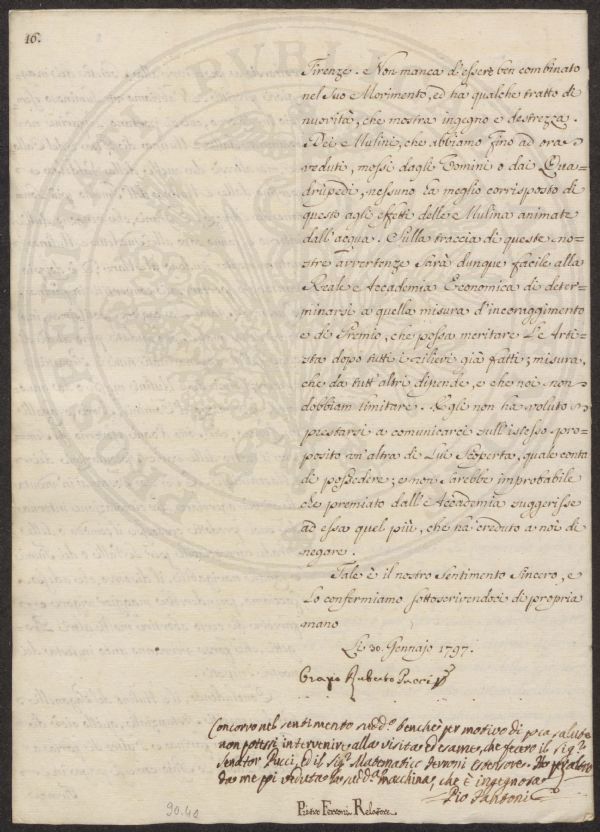 16.
Firenze. Non manca d'essere ben combinato
nel suo Movimento, ed ha qualche tratto di
nuovità, che mostra ingegno e destrezza.
Dei Mulini, che abbiamo fino ad ora
veduti, mossi dagli Uomini o dai Qua=
drupedi, nessuno ha meglio corrisposto di
questo agli effetti delle Mulina animate
dall'acqua. Sulla traccia di queste no=
stre avvertenze sarà dunque facile alla
Reale Accademia Economica di deter=
minarsi a quella misura d'incoraggimento
e di Premio, che possa meritare l'Arti=
sta dopo tutti i rilievi già fatti; misura,
che da tutt'altri dipende, e che noi non
dobbiam limitare. Egli non ha voluto
prestarsi a comunicarci sull'istesso pro=
posito un'altra di Lui Scoperta, quale conta
di possedere; e non sarebbe improbabile
che premiato dall'Accademia suggerisse
ad essa quel più, che ha creduto a noi di
negare.
Tale è il nostro Sentimento Sincero, e
Lo confermiamo sottoscrivendoci di propria
mano
Li 30. Gennajo 1797.
Orazio Ruberto Pucci
Concorro nel sentimento sudd.º benchè per motivo di poca salute
non potessi intervenire alla visita ed esame, che fecero il Sig.r
Senator Pucci, ed il Sig.r Matematico Ferroni estensore.
da me poi veduta la sudd.a macchina, che è ingegnosa
Pio Fantoni
Pietro Ferroni Relatore
90.40
PROSPERITATI PUBLICAE